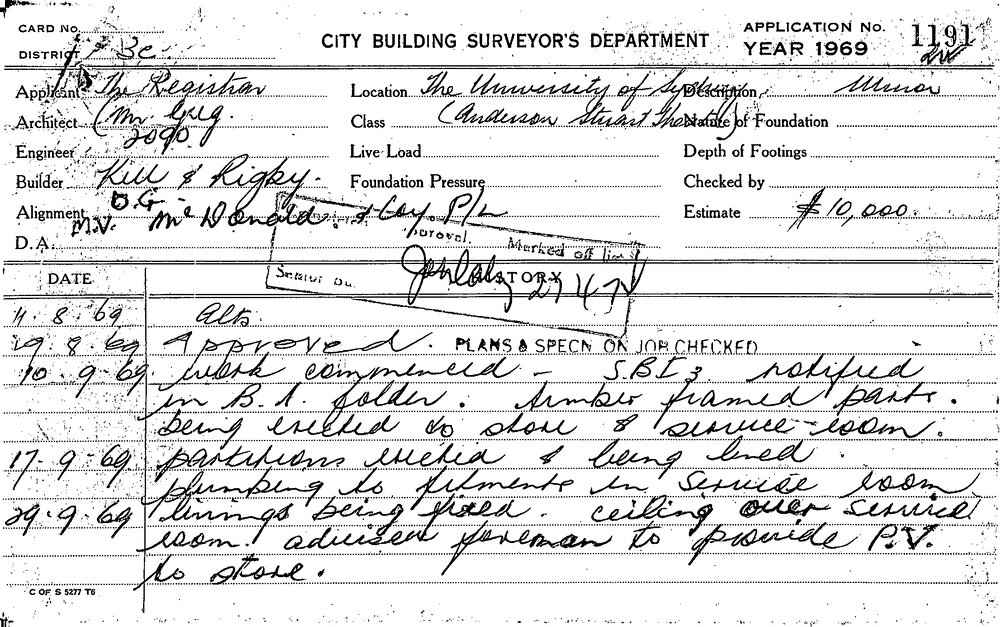 CARD No.
DISTRICT 3C.
CITY BUILDING SURVEYOR'S DEPARTMENT
APPLICATION No. 1191
YEAR 1969
Applicant The Registrar
Location The University of Sydney
Description Minor
Architect (Mr Greg.
2090.
Class (Anderson Stuart
Nature of Foundation
Engineer
Live Load
Depth of Footings
Builder Kell & Rigby.
Foundation Pressure
Checked by
Alignment
M.V. McDonald & Coy. P/L
Estimate $10,000.
D.A.
Approval. Marked off list
Senior Bu
HISTORY
DATE
11.8.69 Alts.
19.8.69 Approved. PLANS & SPECN ON JOB CHECKED
10.9.69 work commenced - S.B.I 3 notified
in B.A. folder. timber framed parts.
being erected to store & service-room.
17.9.69 partitions erected & being lined
plumbing to fitments in service room
29.9.69 linings being fixed. ceiling over service
room. advised foreman to provide P.V.
to store.
C OF S 5277 T6